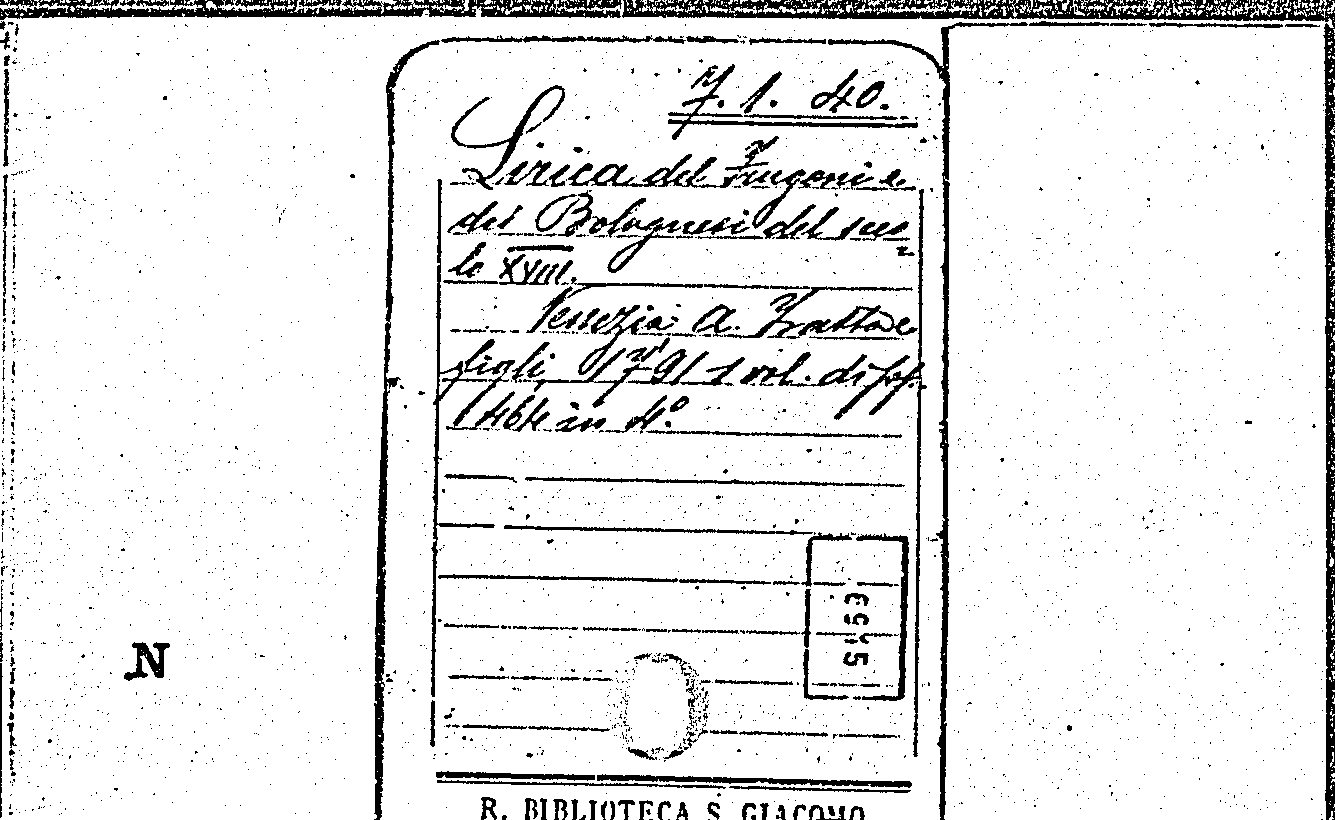 7. 1. 40.
Lirica del Frugoni e
dei Bolognesi del seco
lo XVIII.
Venezia A. Zatta e
figli, 1791 1 vol. di pp.
464 in 4°
N
R. BIBLIOTECA S. GIACOMO